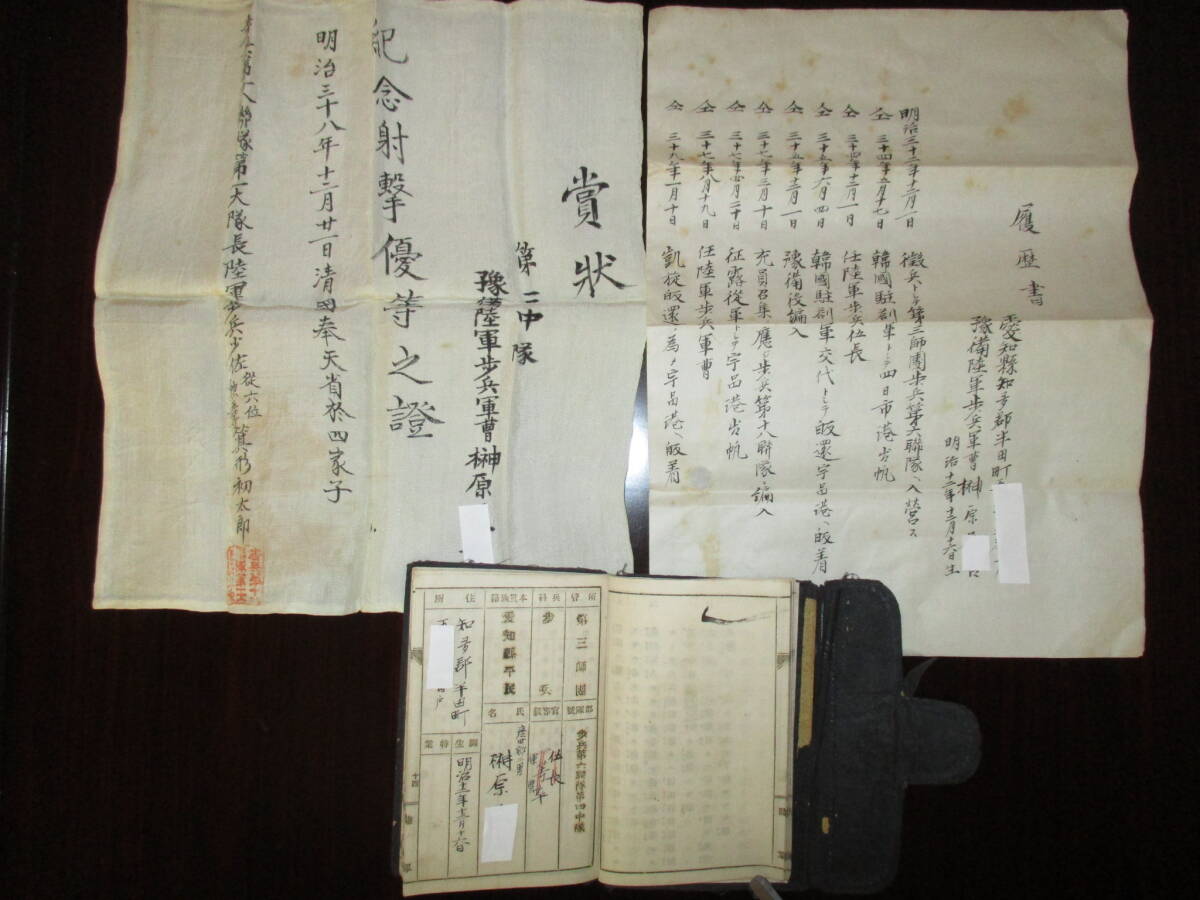 履歴書
愛知縣知多郡半田町
豫備陸軍歩兵軍曹 榊原
明治十二年十二月十六日生
明治三十二年十二月一日 徴兵トシテ第三師團歩兵第六聯隊ヘ入營ス
仝 三十四年五月十七日 韓國駐劄軍トシテ四日市港出帆
仝 三十四年十二月一日 任陸軍歩兵伍長
仝 三十五年六月四日 韓國駐劄軍交代トシテ皈還宇品港ヘ皈着
仝 三十五年十二月一日 豫備役編入
仝 三十七年三月十日 充員召集ニ應シ歩兵第十八聯隊ニ編入
仝 三十七年四月二十日 征露從軍トシテ宇品港出帆
仝 三十七年八月十九日 任陸軍歩兵軍曹
仝 三十九年一月十日 凱旋皈還ノ為メ宇品港ヘ皈着
賞状
第二中隊
豫備陸軍歩兵軍曹 榊原
紀念射撃優等之證
明治三十八年十二月廿一日清國奉天省於四家子
歩兵第十八聯隊第一大隊長陸軍歩兵少佐從六位 箕形初太郎
所管
第三師團
部隊號
歩兵第六聯隊第四中隊
兵科
歩兵
官等級
伍長
本貫族籍
愛知縣平民
氏名
榊原
住所
知多郡半田町
誕生
明治十二年十二月十六日
特業
十四